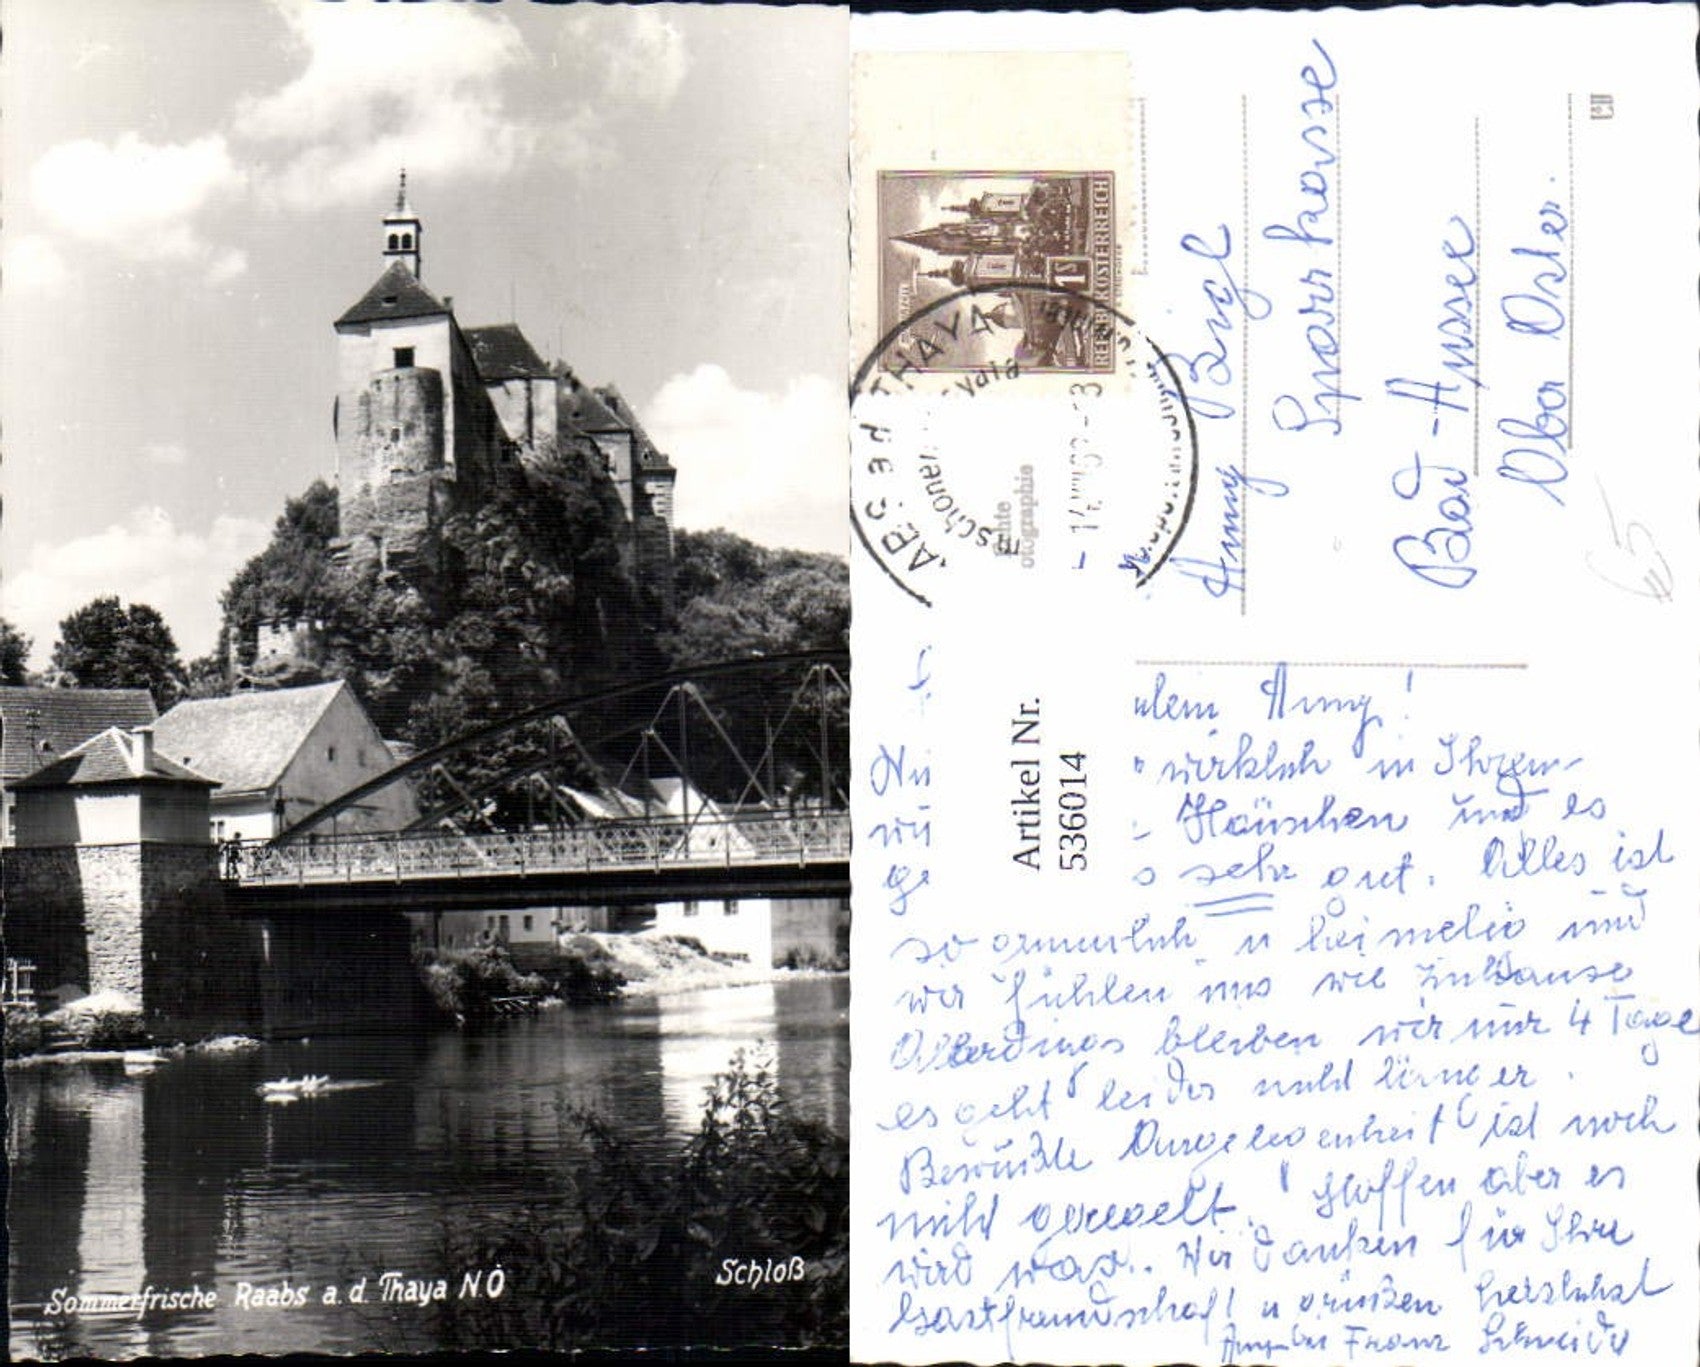 Sommerfrische Raabs a. d. Thaya N.Ö
Schloß
REPUBLIK ÖSTERREICH
1 S
RAABS a.d. THAYA
schönen
Echte
Photographie
Anny
Sparkasse
Bad-Aussee
Ober Öster.
Artikel Nr.
536014
Anny!
wirklich in Ihrem
Häuschen und es
ge sehr gut. Alles ist
so gemütlich u heimelig und
wir fühlen uns wie zuhause
Allerdings bleiben wir nur 4 Tage
es geht leider nicht länger.
Bewußte Angelegenheit ist noch
nicht geregelt. Hoffen aber es
wird was. Wir danken für Ihre
Gastfreundschaft u grüßen herzlichst
Franz